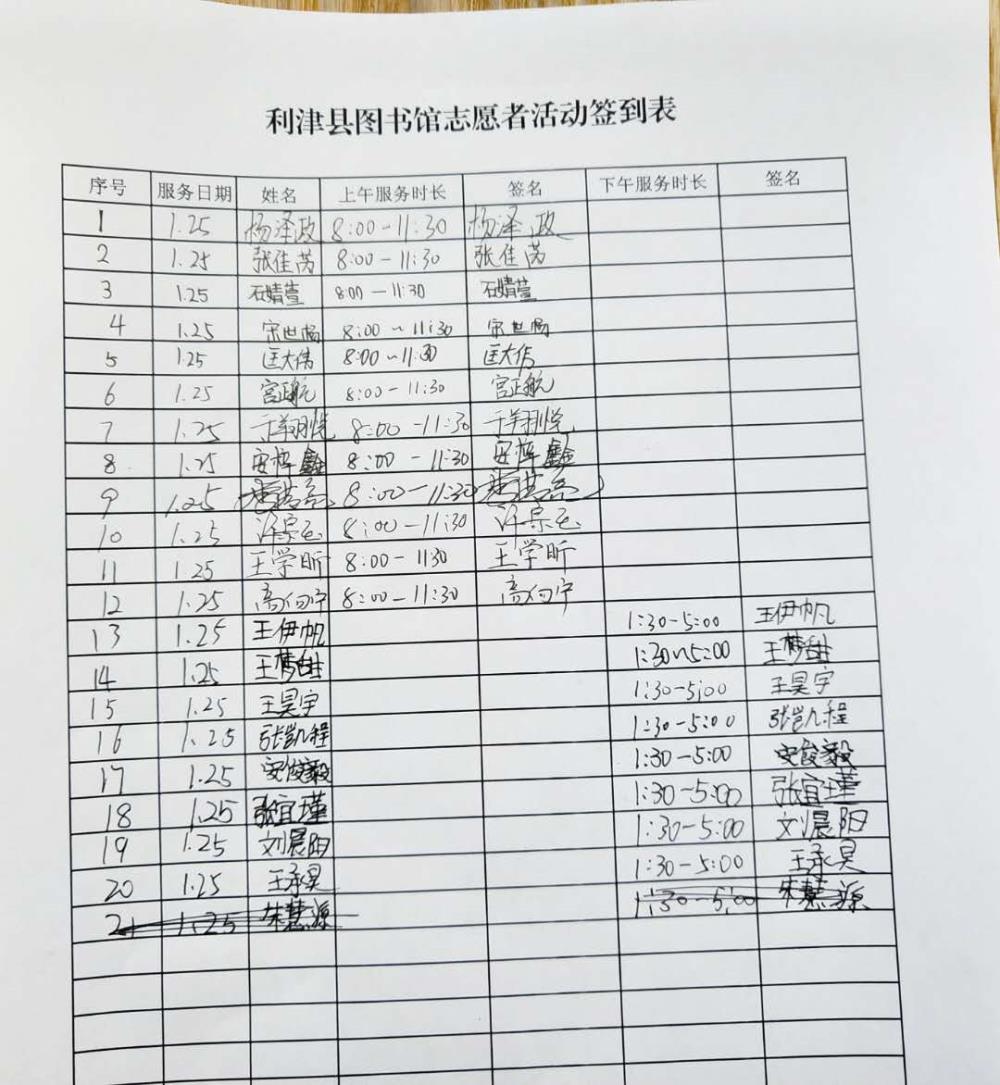 利津县图书馆志愿者活动签到表
序号 服务日期 姓名 上午服务时长 签名 下午服务时长 签名
1 1.25 杨泽政 8:00-11:30 杨泽政
2 1.25 张佳芮 8:00-11:30 张佳芮
3 1.25 石婧萱 8:00-11:30 石婧萱
4 1.25 宋世杨 8:00~11:30 宋世杨
5 1.25 匡大伟 8:00-11:30 匡大伟
6 1.25 宫正航 8:00-11:30 宫正航
7 1.25 于翔悦 8:00-11:30 于翔悦
8 1.25 安梓鑫 8:00-11:30 安梓鑫
9 1.25 8:00-11:30
10 1.25 8:00-11:30
11 1.25 王学昕 8:00-1130 王学昕
12 1.25 高向宁 8:00-11:30 高向宁
13 1.25 王伊帆 1:30-5:00 王伊帆
14 1.25 王梦甜 1:30~5:00 王梦甜
15 1.25 王昊宇 1:30-5:00 王昊宇
16 1.25 张凯程 1:30-5:00 张凯程
17 1.25 安俊毅 1:30-5:00 安俊毅
18 1.25 张宜瑾 1:30-5:00 张宜瑾
19 1.25 刘晨阳 1:30-5:00 刘晨阳
20 1.25 王承昊 1:30-5:00 王承昊
21 1.25 朱慧源 1:30-5:00 朱慧源